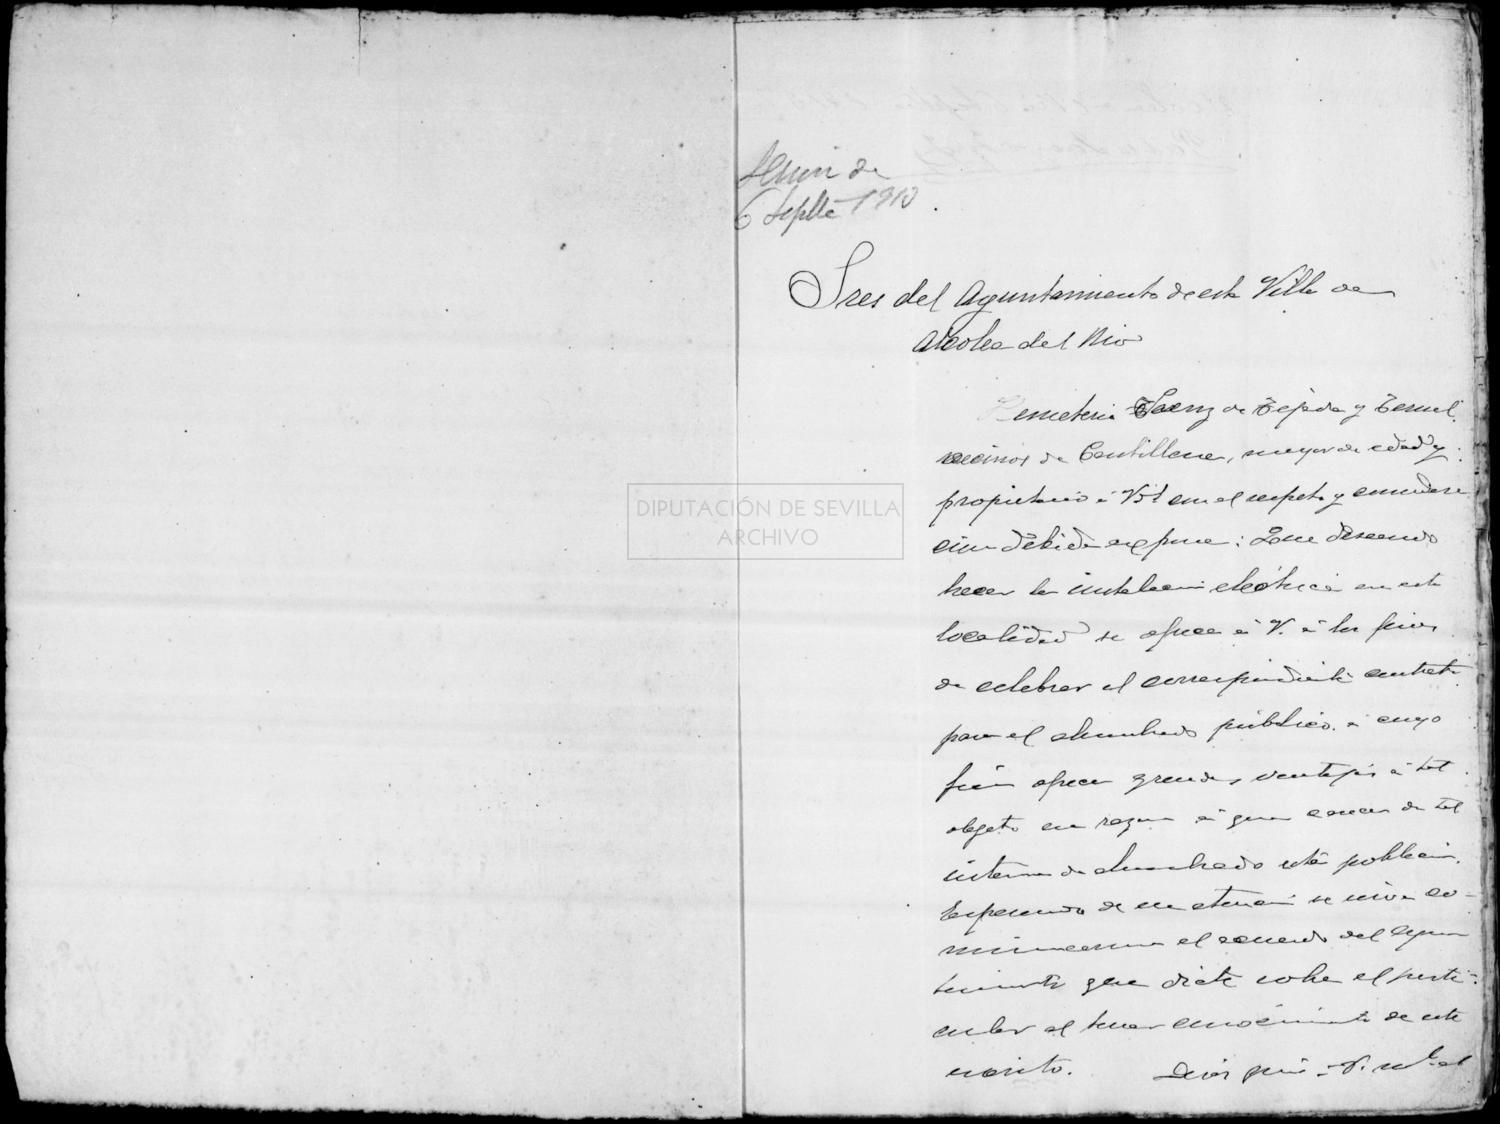 Sesion de
6 Septbe 1910
Sres del Ayuntamiento de esta Villa de
Alcolea del Rio
Emeterio Saenz de Tejada y
vecino de Cantillana, mayor de edad y
propietario á Vst con el respeto y considera
cion debida expone: Que deseando
hacer la instalacion eléctrica en esta
localidad se ofrece á V. á los fines
de celebrar el correspondiente contrato
para el alumbrado público á cuyo
fin ofrece grandes ventajas á tal
objeto en razon á que carece de tal
sistema de alumbrado esta poblacion.
Esperando de su atencion se sirva co-
municarme el acuerdo del Ayun
tamiento que dicte sobre el parti-
cular al tener conocimiento de este
escrito. Dios gue á V. ms as
DIPUTACIÓN DE SEVILLA
ARCHIVO